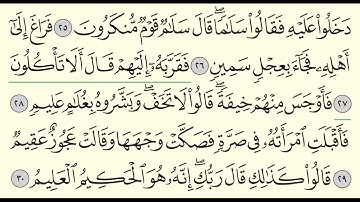 دَخَلُواْ عَلَيْهِ فَقَالُواْ سَلَٰمًاۖ قَالَ سَلَٰمٌ قَوْمٌ مُّنكَرُونَ ٢٥ فَرَاغَ إِلَىٰٓ
أَهْلِهِۦ فَجَآءَ بِعِجْلٍ سَمِينٍ ٢٦ فَقَرَّبَهُۥٓ إِلَيْهِمْ قَالَ أَلَا تَأْكُلُونَ
٢٧ فَأَوْجَسَ مِنْهُمْ خِيفَةًۖ قَالُواْ لَا تَخَفْۖ وَبَشَّرُوهُ بِغُلَٰمٍ عَلِيمٍ ٢٨
فَأَقْبَلَتِ ٱمْرَأَتُهُۥ فِي صَرَّةٍ فَصَكَّتْ وَجْهَهَا وَقَالَتْ عَجُوزٌ عَقِيمٌ
٢٩ قَالُواْ كَذَٰلِكِ قَالَ رَبُّكِۖ إِنَّهُۥ هُوَ ٱلْحَكِيمُ ٱلْعَلِيمُ ٣٠